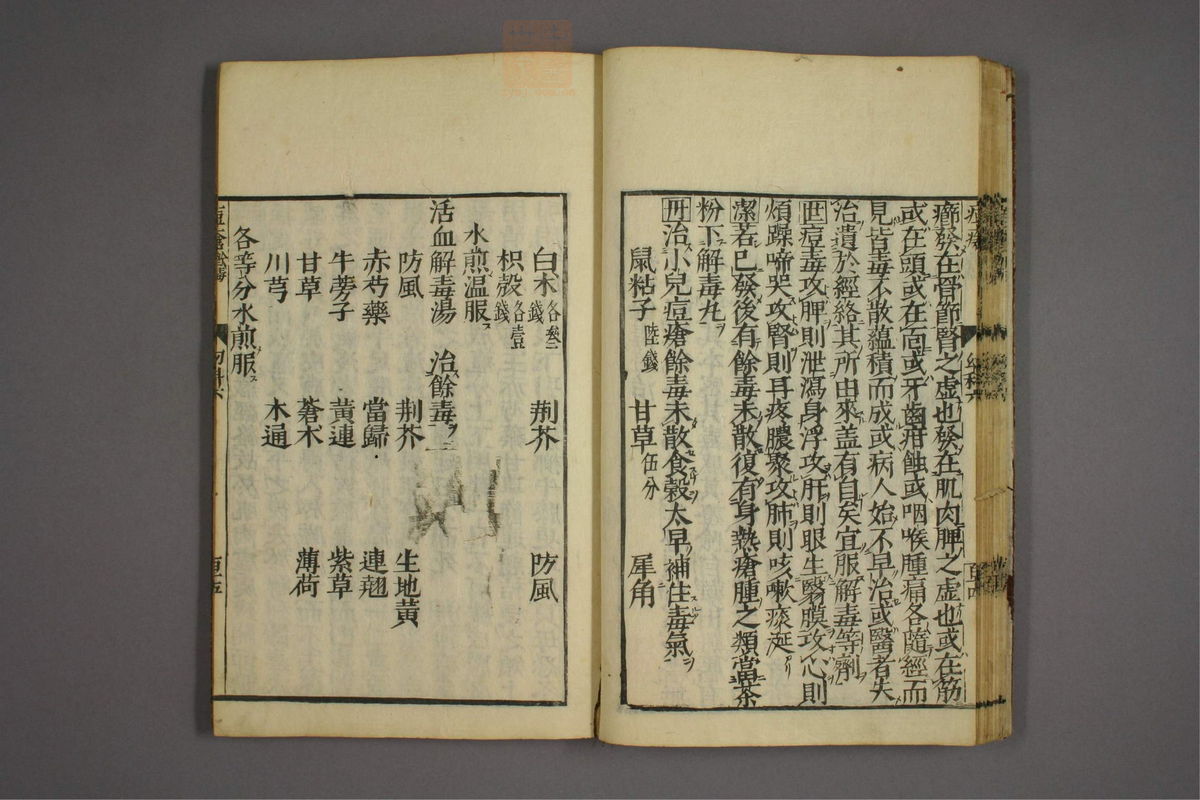 癤發在骨節腎之虛也發在肌肉脾之虛也或在筋
或在頭或在面或牙齒疳蝕或咽喉腫痛各隨經而
見皆毒不散蘊積而成或病人始不早治或醫者失
治遺於經絡其所由來盖有自矣宜服解毒等劑
世痘毒攻脾則泄瀉身浮攻肝則眼生翳膜攻心則
煩躁啼哭攻腎則耳疼膿聚攻肺則咳嗽痰涎
潔若已發後有餘毒未散復有身熱瘡腫之類當茶
粉下解毒丸
丹治小兒痘瘡餘毒未散食穀太早補住毒氣
鼠粘子陸錢 甘草伍分 犀角
白朮各叁錢 荆芥 防風
枳殼各壹錢
水煎温服
活血解毒湯 治餘毒
防風 荆芥 生地黃
赤芍藥 當歸 連翹
牛蒡子 黃連 紫草
甘草 蒼朮 薄荷
川芎 木通
各等分水煎服